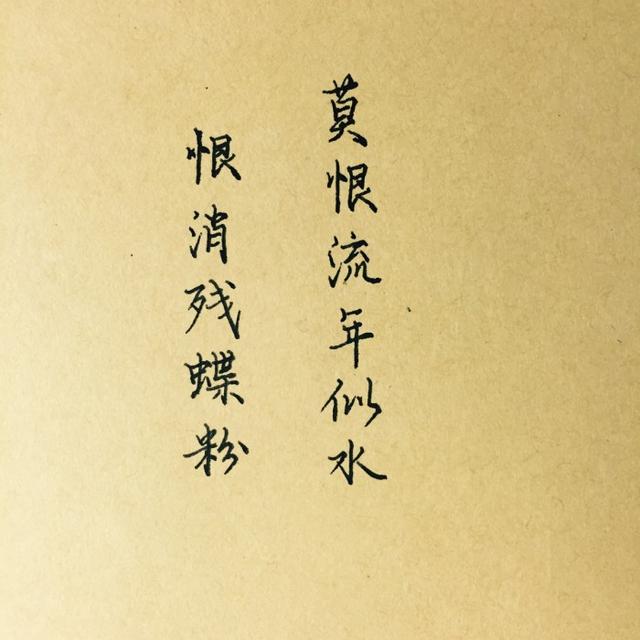 莫恨流年似水
恨消残蝶粉